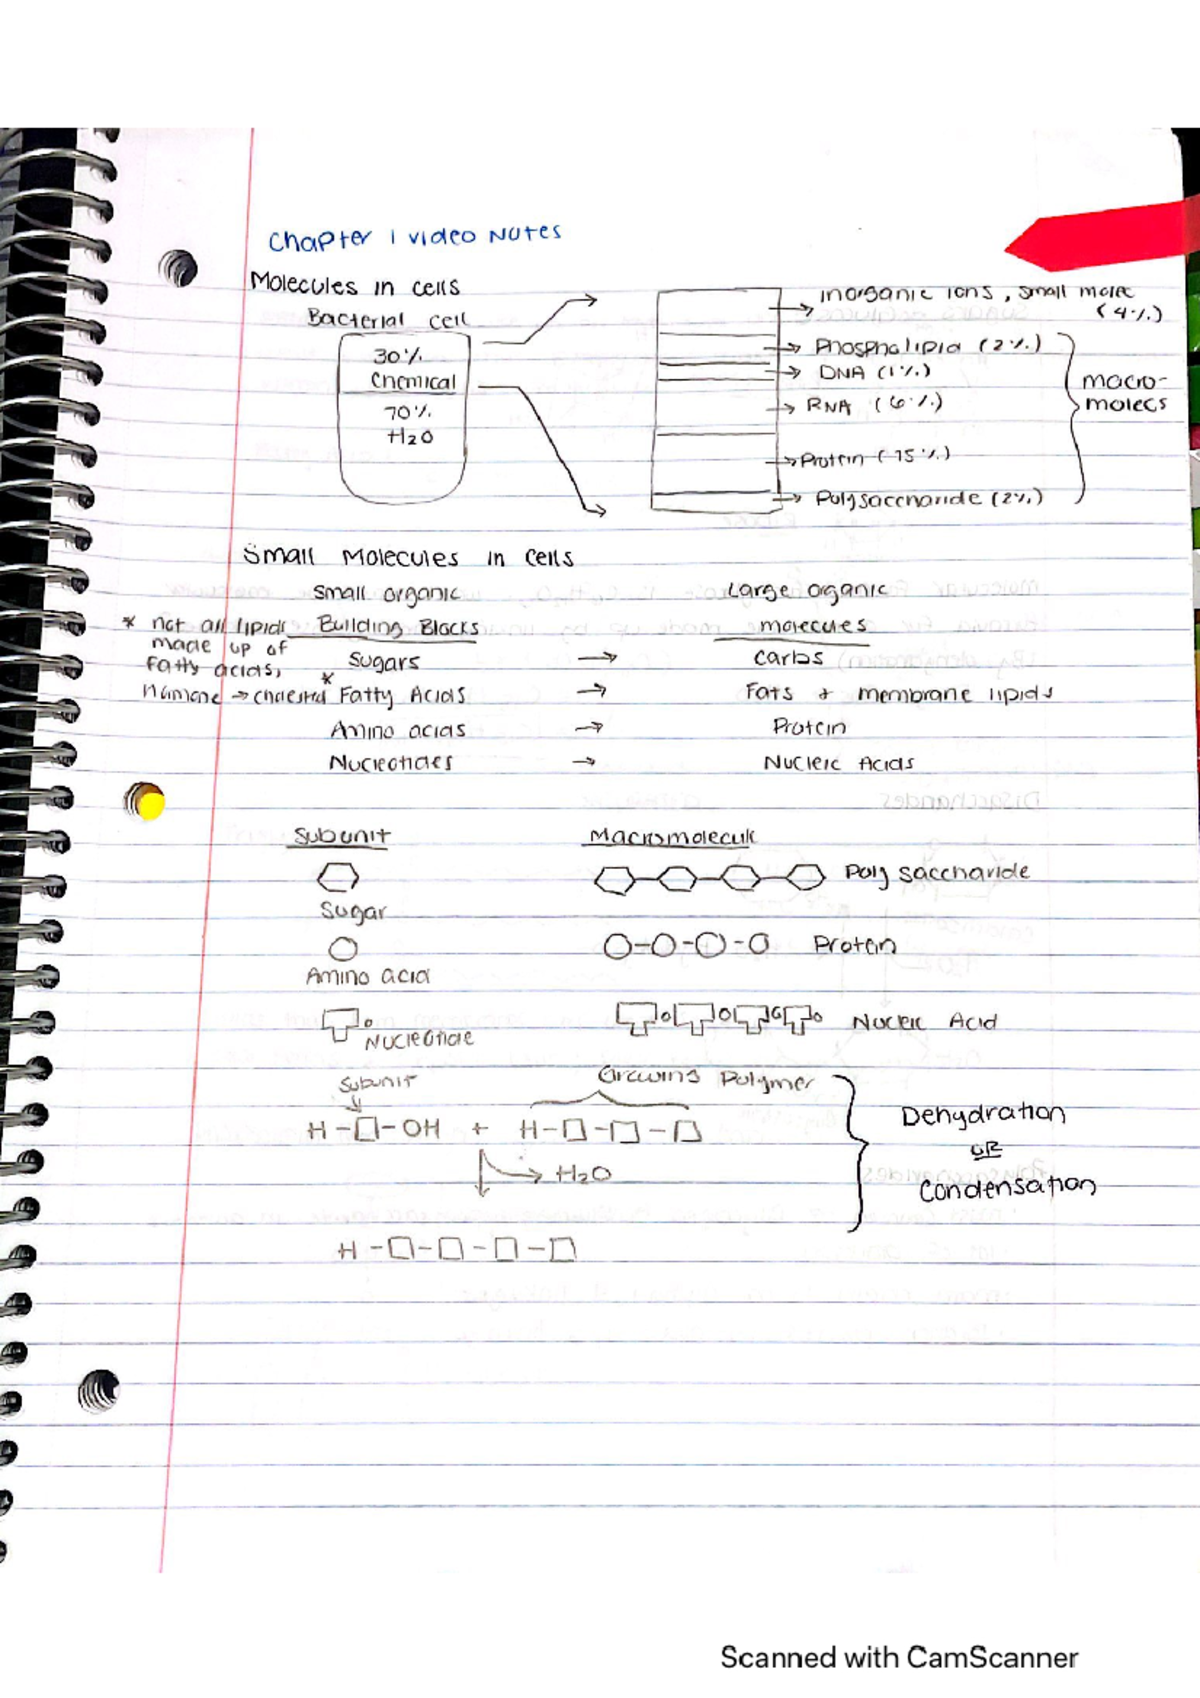 Chapter 1 video Notes
Molecules in cells
Bacterial cell
30%
Chemical
70%
H2O
inorganic ions, small molec
(4%)
Phospholipid (2%)
DNA (1%)
RNA (6%)
Protein (15%)
Polysaccharide (2%)
macro-
molecs
Small Molecules in cells
Small organic
Building Blocks
Large organic
molecules
* not all lipids
made up of
fatty acids,
Sugars → carbs
* Fatty Acids → Fats + membrane lipids
Amino acids → Protein
Nucleotides → Nucleic Acids
Subunit
Macromolecule
Sugar
Polysaccharide
Amino acid
Protein
Nucleotide
Nucleic Acid
Subunit
Growing Polymer
H - - OH + H - - -
→ H2O
H - - - -
Dehydration
OR
Condensation
Scanned with CamScanner